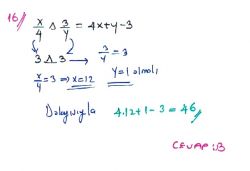 16) x/4 Δ 3/y = 4x+y-3
3 Δ 3 → 3/y = 3
x/4 = 3 ⇒ x=12 y=1 olmalı
Dolayısıyla 4.12+1-3 = 46
CEVAP: B